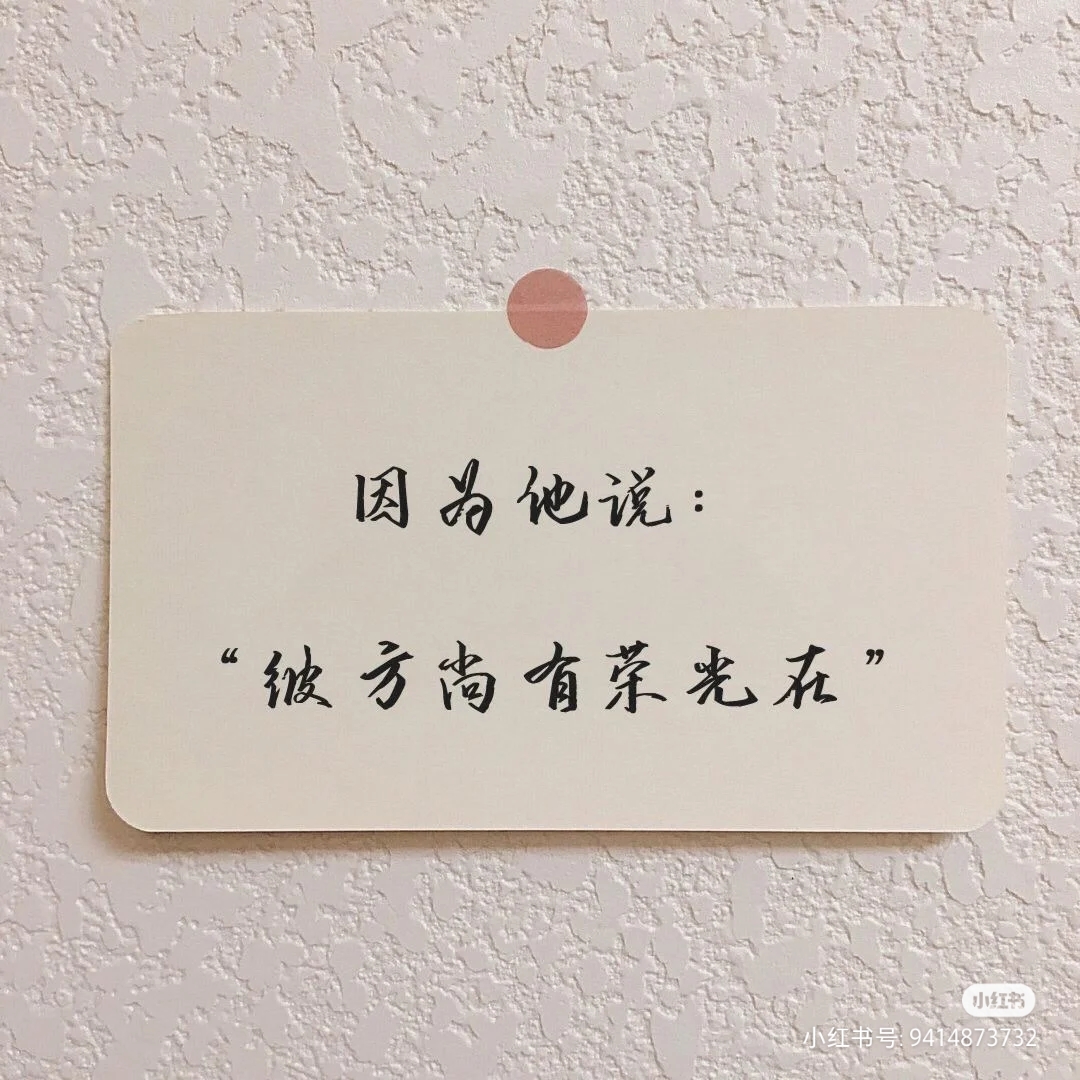 因为他说：
“彼方尚有荣光在”
小红书
小红书号: 9414873732